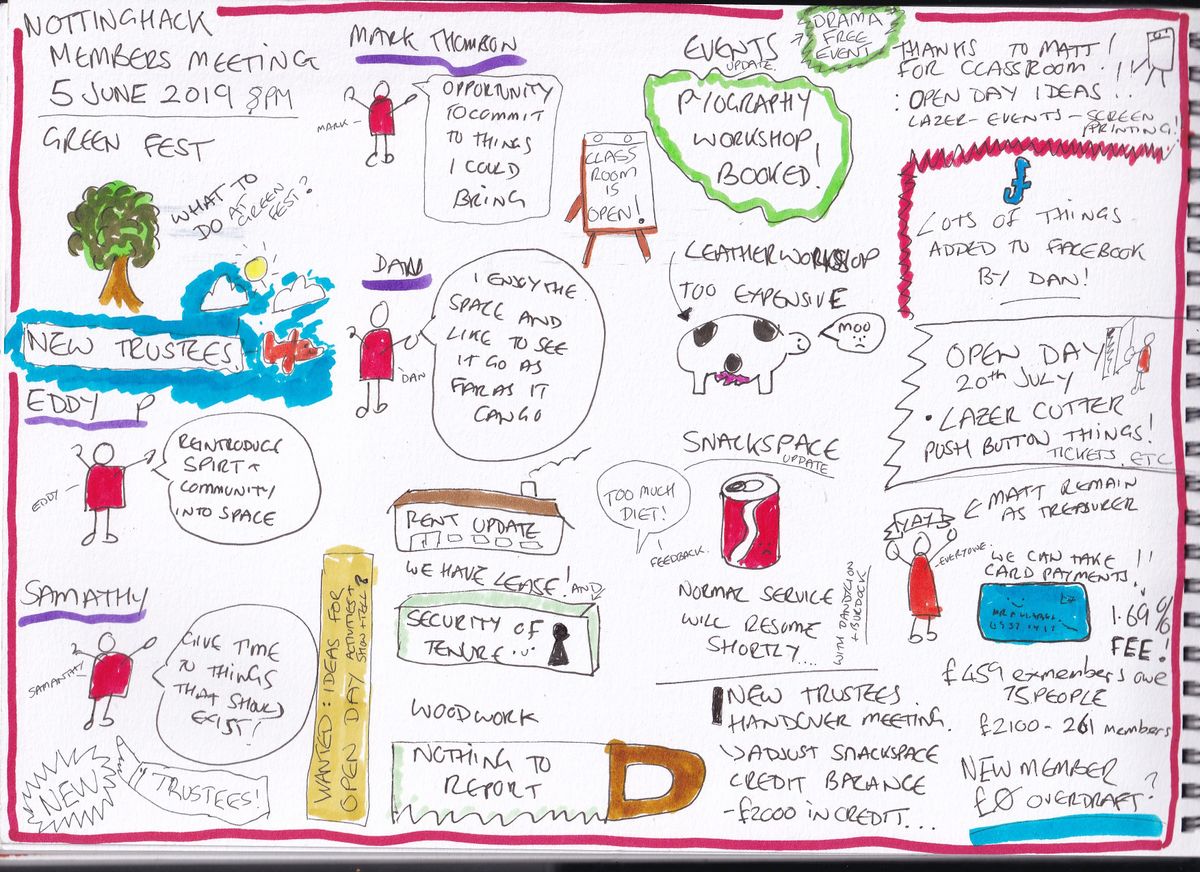 NOTTINGHACK
MEMBERS MEETING
5 JUNE 2019 8PM
GREEN FEST
WHAT TO
DO AT
GREEN
FEST?
NEW TRUSTEES
EDDY P
EDDY
REINTRODUCE
SPIRT +
COMMUNITY
INTO SPACE
SAMATHY
SAMATHY
GIVE TIME
TO THINGS
THAT SHOULD
EXIST!
NEW
TRUSTEES!
MARK THOMSON
MARK
OPPORTUNITY
TO COMMIT
TO THINGS
I COULD
BRING
DAN
DAN
I ENJOY THE
SPACE AND
LIKE TO SEE
IT GO AS
FAR AS IT
CAN GO
WANTED: IDEAS FOR
OPEN DAY ACTIVITIES?
SHOW + TELL?
RENT UPDATE
WE HAVE LEASE! AND
SECURITY OF
TENURE
WOODWORK
NOTHING TO
REPORT
EVENTS
UPDATE
DRAMA
FREE
EVENT
PYOGRAPHY
WORKSHOP
BOOKED!
CLASS
ROOM
IS
OPEN!
LEATHERWORKSHOP
TOO EXPENSIVE
MOO
SNACKSPACE
UPDATE
TOO MUCH
DIET!
FEEDBACK.
NORMAL SERVICE
WILL RESUME
SHORTLY....
WITH DANDYLION
+ BURDOCK
NEW TRUSTEES
HANDOVER MEETING.
ADJUST SNACKSPACE
CREDIT BALANCE
-£2000 IN CREDIT...
THANKS TO MATT!
FOR CLASSROOM !!
• OPEN DAY IDEAS !!
LAZER - EVENTS - SCREEN
PRINTING!
f
LOTS OF THINGS
ADDED TO FACEBOOK
BY DAN!
OPEN DAY
20TH JULY
• LAZER CUTTER
PUSH BUTTON THINGS!
TICKETS. ETC
MATT REMAIN
AS TREASURER
YAY
EVERYONE.
WE CAN TAKE !!
CARD PAYMENTS!
1.69%
FEE!
£459 exmembers owe
75 PEOPLE
£2100 - 261 members
NEW MEMBER
£0 OVERDRAFT?